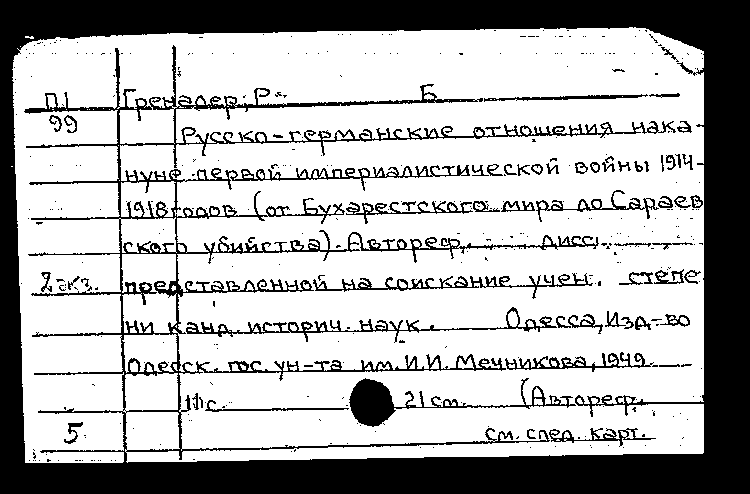 П1 Гренадер, Р. Б
99
Русско-германские отношения нака-
нуне первой империалистической войны 1914-
1918 годов (от Бухарестского мира до Сараев
ского убийства). Автореф. дисс.,
2 экз. представленной на соискание учен. степе
ни канд. историч. наук. Одесса, Изд-во
Одесск. гос. ун-та им. И.И. Мечникова, 1949.
11 с. 21 см. (Автореф.
5 см. след. карт.